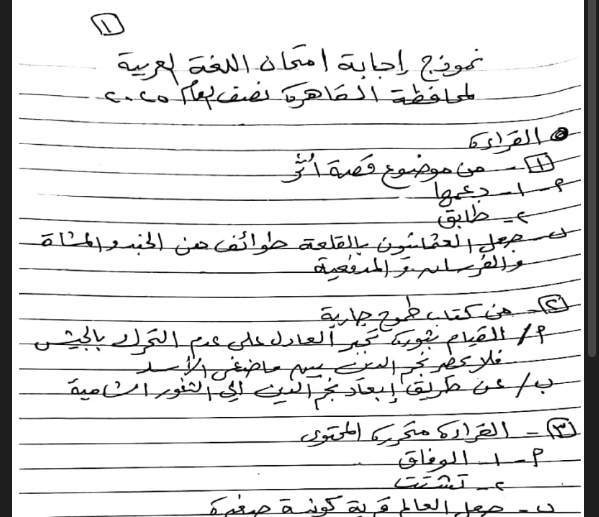 ١
نموذج إجابة امتحان اللغة العربية
لمحافظة القاهرة نصف العام ٢٠٢٥
القراءة
١ - من موضوع قصة أثر
٢ - ١ - دعمها
٢ - طابق
ب - جعل العثمانيون بالقلعة طوائف من الجند والمشاة
والفرسان والمدفعية
٢ - من كتاب طموح جارية
٢/ القيام بثورة تجبر العادل على عدم التحرك بالجيش
فلا يحصر نجم الدين بين ماضغى الأسد
ب/ عن طريق إبعاد نجم الدين إلى الثغور الشامية
٣ - القراءة متحررة المحتوى
٢ - ١ - الوفاق
٢ - تشتت
ب - جعل العالم قرية كونية صغيرة